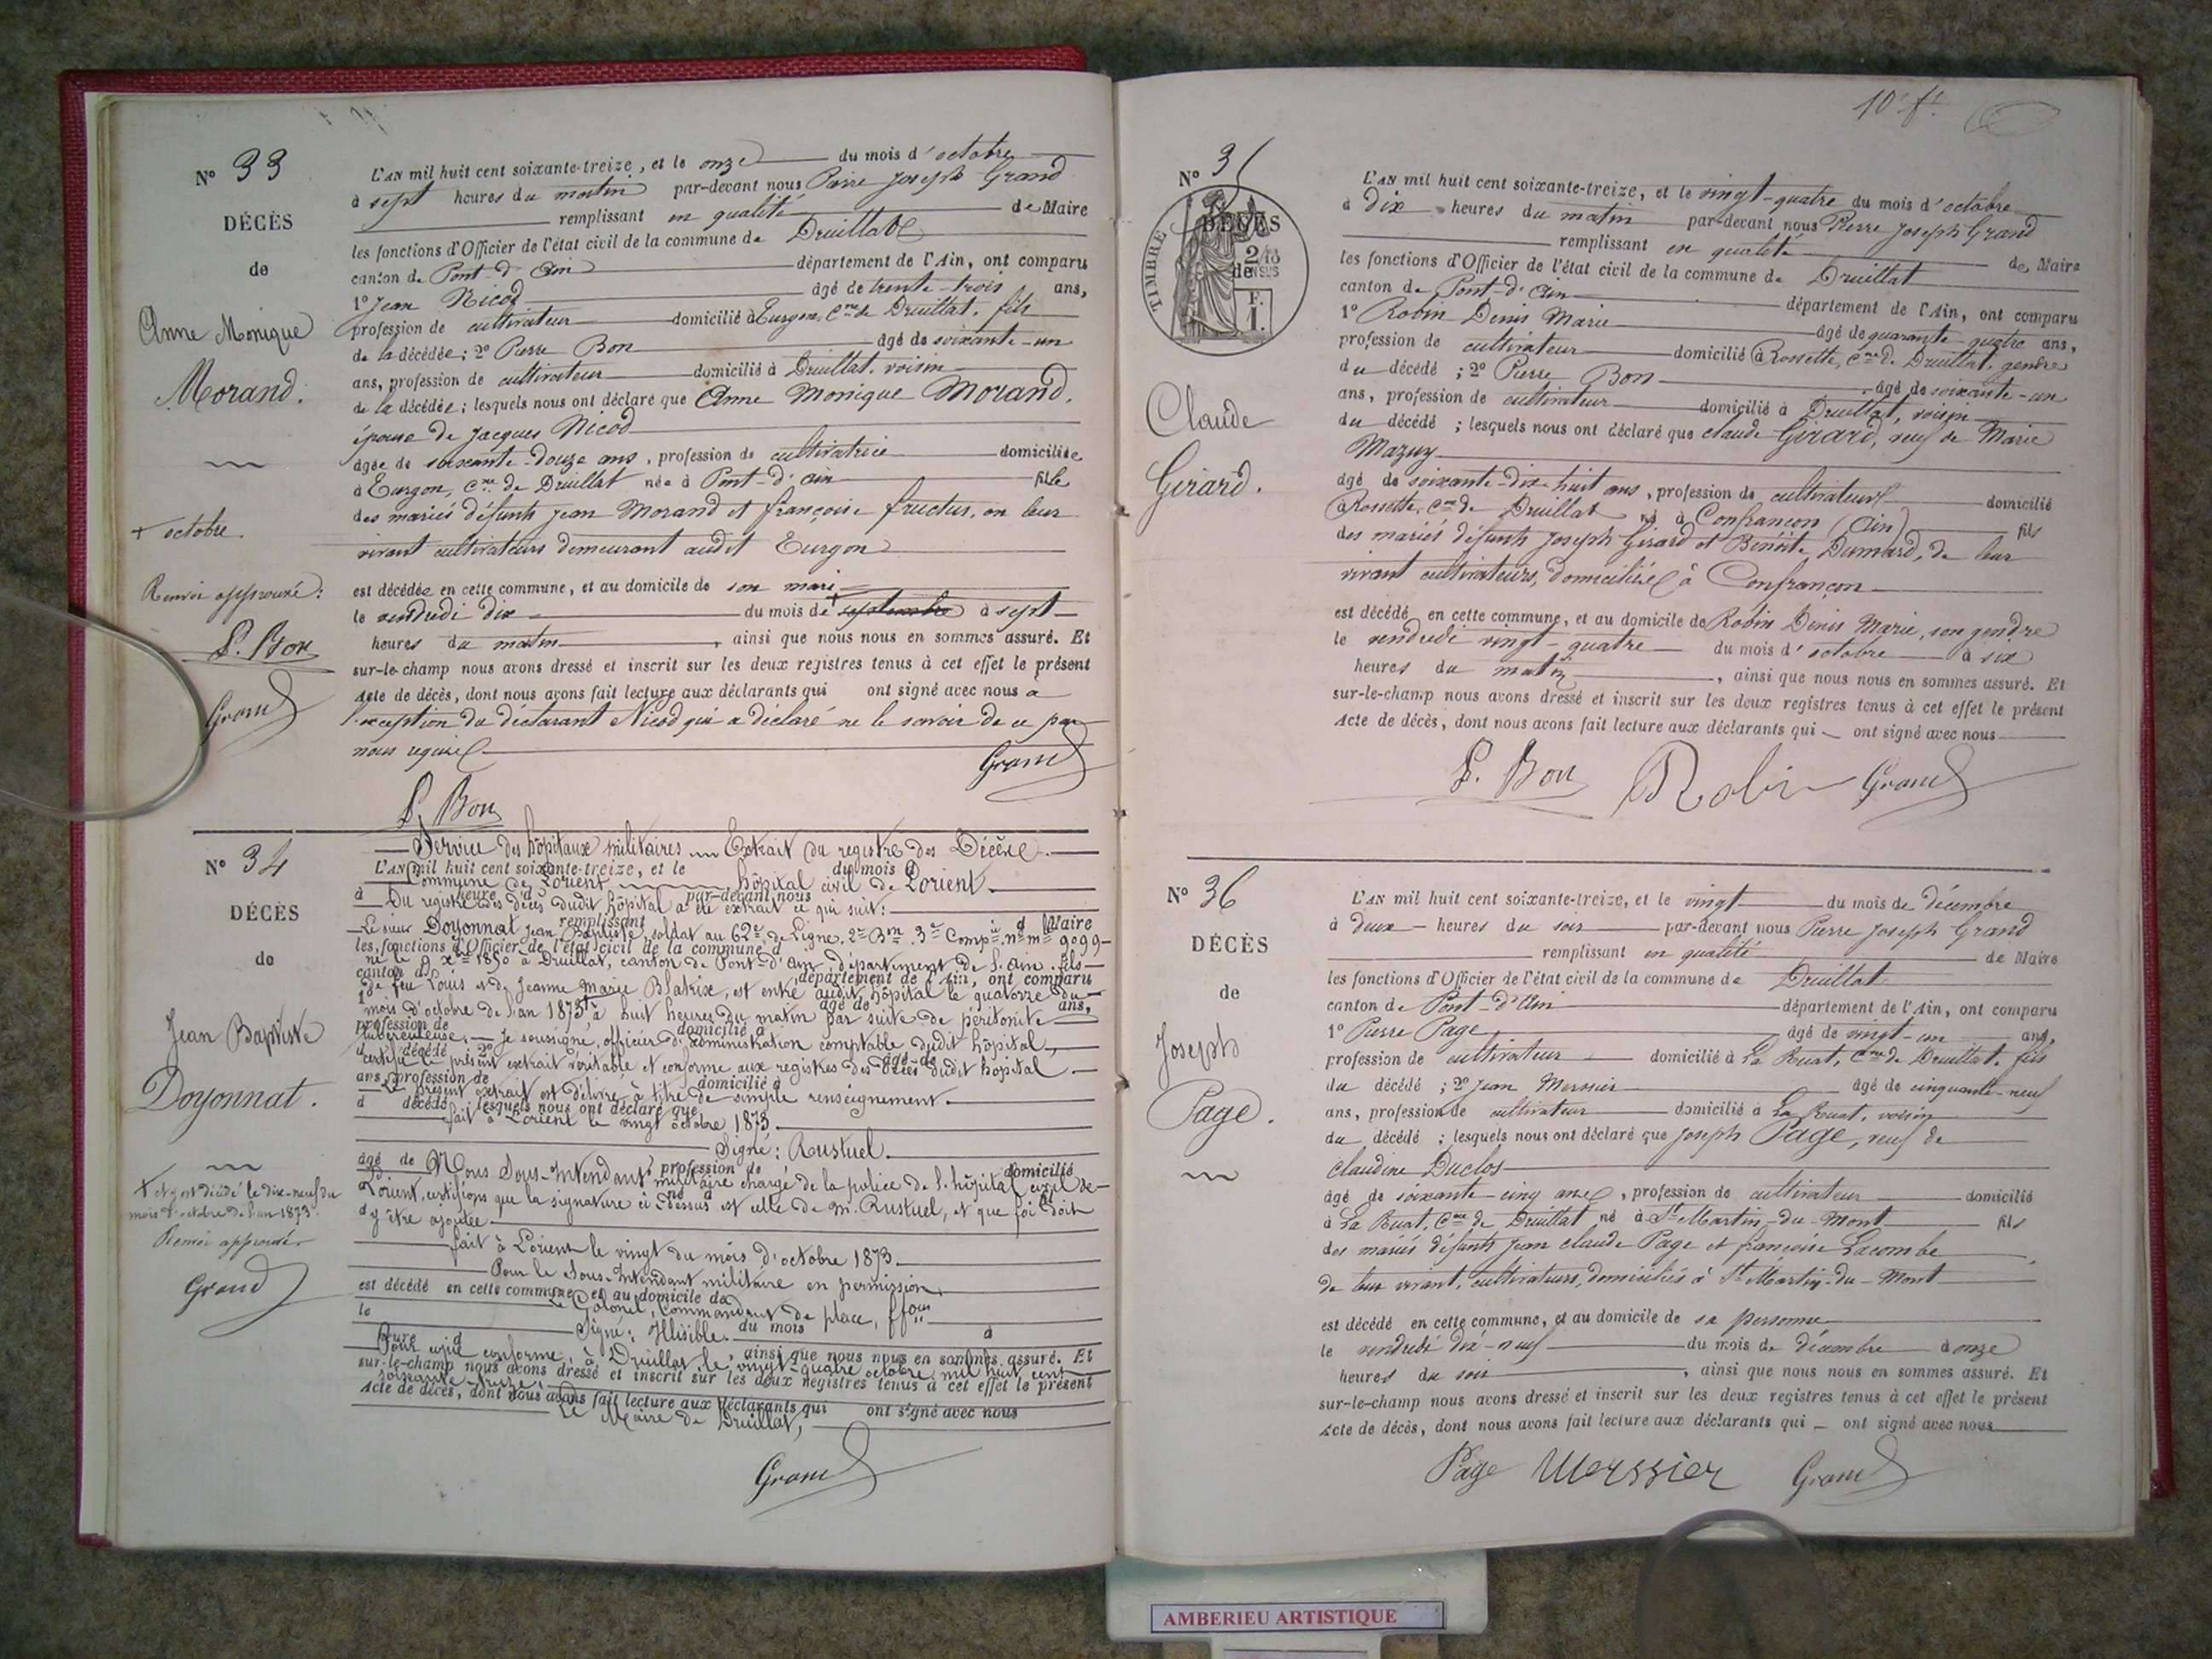 N° 33
DÉCÈS
de
Anne Monique
Morand.
+ octobre.
Renvoi approuvé:
P. Bon
Grand
L'AN mil huit cent soixante-treize, et le onze du mois d'octobre
à sept heures du matin par-devant nous Pierre Joseph Grand
remplissant en qualité de Maire
les fonctions d'Officier de l'état civil de la commune de Druillat
canton de Pont-d'Ain département de l'Ain, ont comparu
1° Jean Nicod âgé de trente-trois ans,
profession de cultivateur domicilié à Eurgon, Cne de Druillat, fils
de la décédée; 2° Pierre Bon âgé de soixante-un
ans, profession de cultivateur domicilié à Druillat, voisin
de la décédée; lesquels nous ont déclaré que Anne Monique Morand,
épouse de Jacques Nicod
âgée de soixante-douze ans, profession de cultivatrice domiciliée
à Eurgon, Cne de Druillat née à Pont-d'Ain fille
des mariés défunts Jean Morand et françoise fructus, en leur
vivant cultivateurs demeurant audit Eurgon
est décédée en cette commune, et au domicile de son mari
le vendredi dix du mois de + septembre à sept
heures du matin, ainsi que nous nous en sommes assuré. Et
sur-le-champ nous avons dressé et inscrit sur les deux registres tenus à cet effet le présent
Acte de décès, dont nous avons fait lecture aux déclarants qui ont signé avec nous a
l'exception du déclarant Nicod qui a déclaré ne le savoir de ce par
nous requis
Grand
P. Bon
N° 34
DÉCÈS
de
Jean Baptiste
Doyonnat.
+ et y est décédé le dix-neuf du
mois d'octobre de l'an 1873.
Renvoi approuvé
Grand
Service des hôpitaux militaires Extrait du registre des Décès.
L'AN mil huit cent soixante-treize, et le du mois d
Commune de Lorient hôpital civil de Lorient.
à heure d par-devant nous
Du registre des décès dudit hôpital a été extrait ce qui suit:
remplissant d Maire
Le sieur Doyonnat Jean Baptiste, soldat au 62e de Ligne, 2e Bon 3e Compie, n° mle 9099
les fonctions d'Officier de l'état civil de la commune d
né le 9 Xbre 1850 à Druillat, canton de Pont-d'Ain, département de l'Ain, fils
canton d département de l'Ain, ont comparu
de feu Louis et de Jeanne Marie Blatrix, est entré audit hôpital le quatorze du
1° âgé de ans,
mois d'octobre de l'an 1873 + à huit heures du matin par suite de péritonite
profession de domicilié à
tuberculeuse. Je soussigné, officier d'administration comptable dudit hôpital,
d décédé 2° âgé de
certifie le présent extrait véritable et conforme aux registres des décès dudit hôpital.
ans, profession de domicilié à
Le présent extrait est délivré à titre de simple renseignement.
d décédé lesquels nous ont déclaré que
fait à Lorient le vingt octobre 1873.
Signé: Rustuel.
âgé de profession de domicilié
Nous Sous-Intendant militaire chargé de la police de l'hôpital civil de
Lorient, certifions que la signature ci-dessus est celle de M. Rustuel, et que foi doit
y être ajoutée.
fait à Lorient le vingt du mois d'octobre 1873.
Pour le Sous-Intendant militaire en permission,
est décédé en cette commune, et au domicile de
Le Colonel, Commandant de place, ffons
le du mois à
Signé: Illisible.
heure d, ainsi que nous nous en sommes assuré. Et
Pour copie conforme, à Druillat, le vingt-quatre octobre mil huit cent
sur-le-champ nous avons dressé et inscrit sur les deux registres tenus à cet effet le présent
soixante-treize.
Acte de décès, dont nous avons fait lecture aux déclarants qui ont signé avec nous
Le Maire de Druillat,
Grand
10e ft
N° 35
DÉCÈS
de
TIMBRE
2/10
EN SUS
F.
1.
Claude
Girard.
L'AN mil huit cent soixante-treize, et le vingt-quatre du mois d'octobre
à dix heures du matin par-devant nous Pierre Joseph Grand
remplissant en qualité de Maire
les fonctions d'Officier de l'état civil de la commune de Druillat
canton de Pont-d'Ain département de l'Ain, ont comparu
1° Robin Denis Marie âgé de quarante-quatre ans,
profession de cultivateur domicilié à Rossette, Cne de Druillat, gendre
du décédé; 2° Pierre Bon âgé de soixante-un
ans, profession de cultivateur domicilié à Druillat, voisin
du décédé; lesquels nous ont déclaré que Claude Girard, veuf de Marie
Mazuy
âgé de soixante-dix-huit ans, profession de cultivateur domicilié
à Rossette, Cne de Druillat né à Confrançon (Ain) fils
des mariés défunts Joseph Girard et Benoîte Dumard, de leur
vivant cultivateurs, domiciliés à Confrançon
est décédé en cette commune, et au domicile de Robin Denis Marie, son gendre
le vendredi vingt-quatre du mois d'octobre à six
heures du matin, ainsi que nous nous en sommes assuré. Et
sur-le-champ nous avons dressé et inscrit sur les deux registres tenus à cet effet le présent
Acte de décès, dont nous avons fait lecture aux déclarants qui ont signé avec nous
P. Bon Robin Grand
N° 36
DÉCÈS
de
Joseph
Page.
L'AN mil huit cent soixante-treize, et le vingt du mois de décembre
à deux heures du soir par-devant nous Pierre Joseph Grand
remplissant en qualité de Maire
les fonctions d'Officier de l'état civil de la commune de Druillat
canton de Pont-d'Ain département de l'Ain, ont comparu
1° Pierre Page âgé de vingt-un ans,
profession de cultivateur domicilié à La Ruat, Cne de Druillat, fils
du décédé; 2° Jean Merssier âgé de cinquante-neuf
ans, profession de cultivateur domicilié à La Ruat, voisin
du décédé; lesquels nous ont déclaré que Joseph Page, veuf de
Claudine Duclos
âgé de soixante-cinq ans, profession de cultivateur domicilié
à La Ruat, Cne de Druillat né à St Martin-du-Mont fils
des mariés défunts Jean Claude Page et françoise Lacombe
de leur vivant, cultivateurs, domiciliés à St Martin-du-Mont
est décédé en cette commune, et au domicile de sa personne
le vendredi dix-neuf du mois de décembre à onze
heures du soir, ainsi que nous nous en sommes assuré. Et
sur-le-champ nous avons dressé et inscrit sur les deux registres tenus à cet effet le présent
Acte de décès, dont nous avons fait lecture aux déclarants qui ont signé avec nous
Page Merssier Grand
AMBERIEU ARTISTIQUE